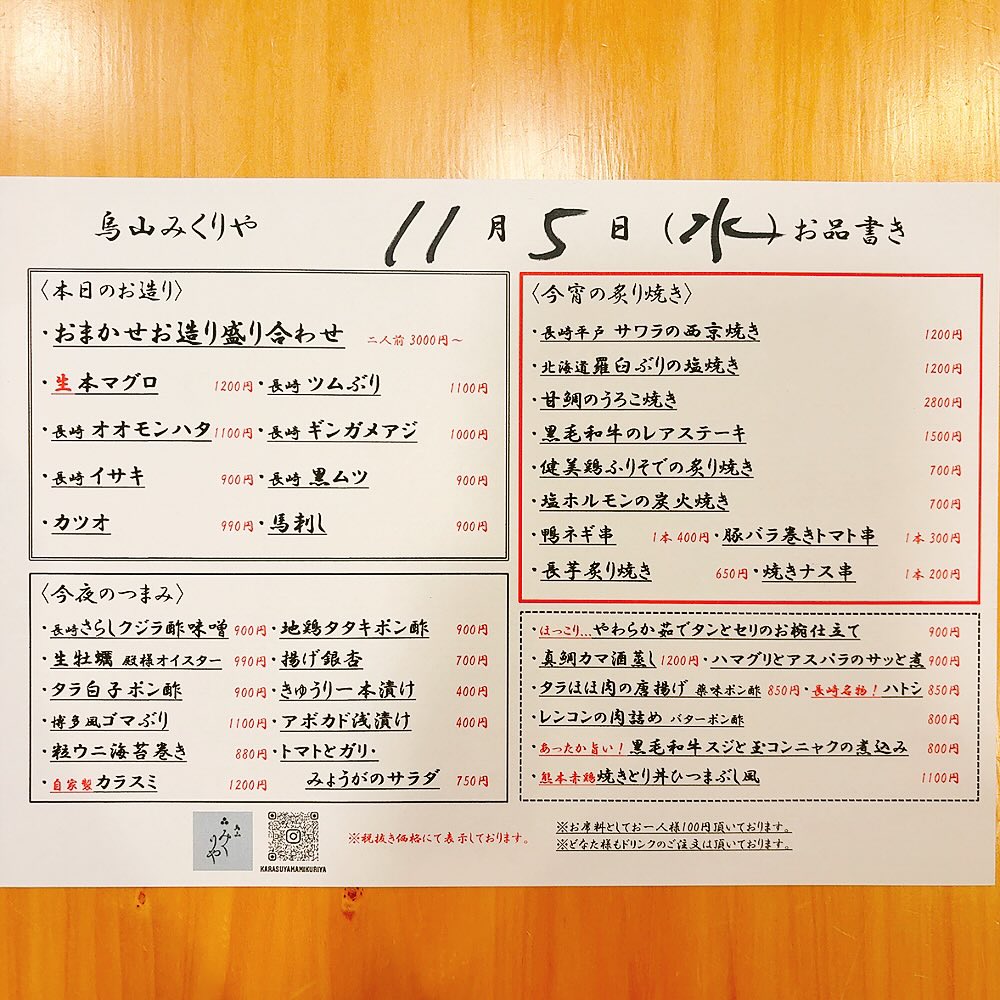 烏山みくりや 11月5日(水)お品書き
〈本日のお造り〉
・おまかせお造り盛り合わせ 二人前 3000円〜
・生本マグロ 1200円・長崎 ツムぶり 1100円
・長崎 オオモンハタ 1100円・長崎 ギンガメアジ 1000円
・長崎 イサキ 900円・長崎 黒ムツ 900円
・カツオ 990円・馬刺し 900円
〈今夜のつまみ〉
・長崎さらしクジラ酢味噌 900円・地鶏タタキポン酢 900円
・生牡蠣 殿様オイスター 990円・揚げ銀杏 700円
・タラ白子ポン酢 900円・きゅうり一本漬け 400円
・博多風ゴマぶり 1100円・アボカド浅漬け 400円
・粒ウニ海苔巻き 880円・トマトとガリ・
・自家製カラスミ 1200円 みょうがのサラダ 750円
〈今宵の炙り焼き〉
・長崎平戸 サワラの西京焼き 1200円
・北海道羅臼ぶりの塩焼き 1200円
・甘鯛のうろこ焼き 2800円
・黒毛和牛のレアステーキ 1500円
・健美鶏ふりそでの炙り焼き 700円
・塩ホルモンの炭火焼き 700円
・鴨ネギ串 1本 400円・豚バラ巻きトマト串 1本 300円
・長芋炙り焼き 650円・焼きナス串 1本 200円
・ほっこり…やわらか茹でタンとセリのお椀仕立て 900円
・真鯛カマ酒蒸し 1200円・ハマグリとアスパラのサッと煮 900円
・タラほほ肉の唐揚げ 薬味ポン酢 850円・長崎名物！ハトシ 850円
・レンコンの肉詰め バターポン酢 800円
・あったか旨い！黒毛和牛スジと玉コンニャクの煮込み 800円
・熊本赤鶏焼きとり丼ひつまぶし風 1100円
みくりや
KARASUYAMAMIKURIYA
※税抜き価格にて表示しております。
※お席料としてお一人様100円頂いております。
※どなた様もドリンクのご注文は頂いております。